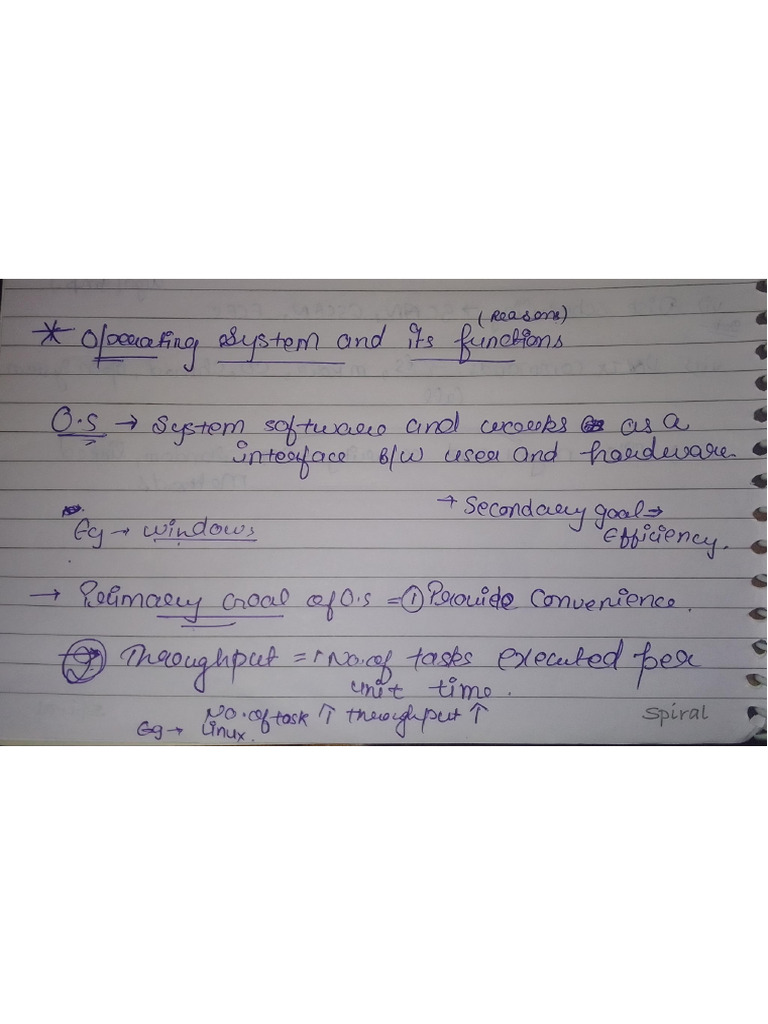 (Reasons)
* Operating System and its functions
O.S → System software and works as a
interface B/W user and hardware
Eg → windows
→ Secondary goal →
Efficiency.
→ Primary Goal of O.S = ① Provide Convenience.
② Throughput = No. of tasks executed per
unit time.
No. of task ↑ throughput ↑
Eg → Linux.
Spiral